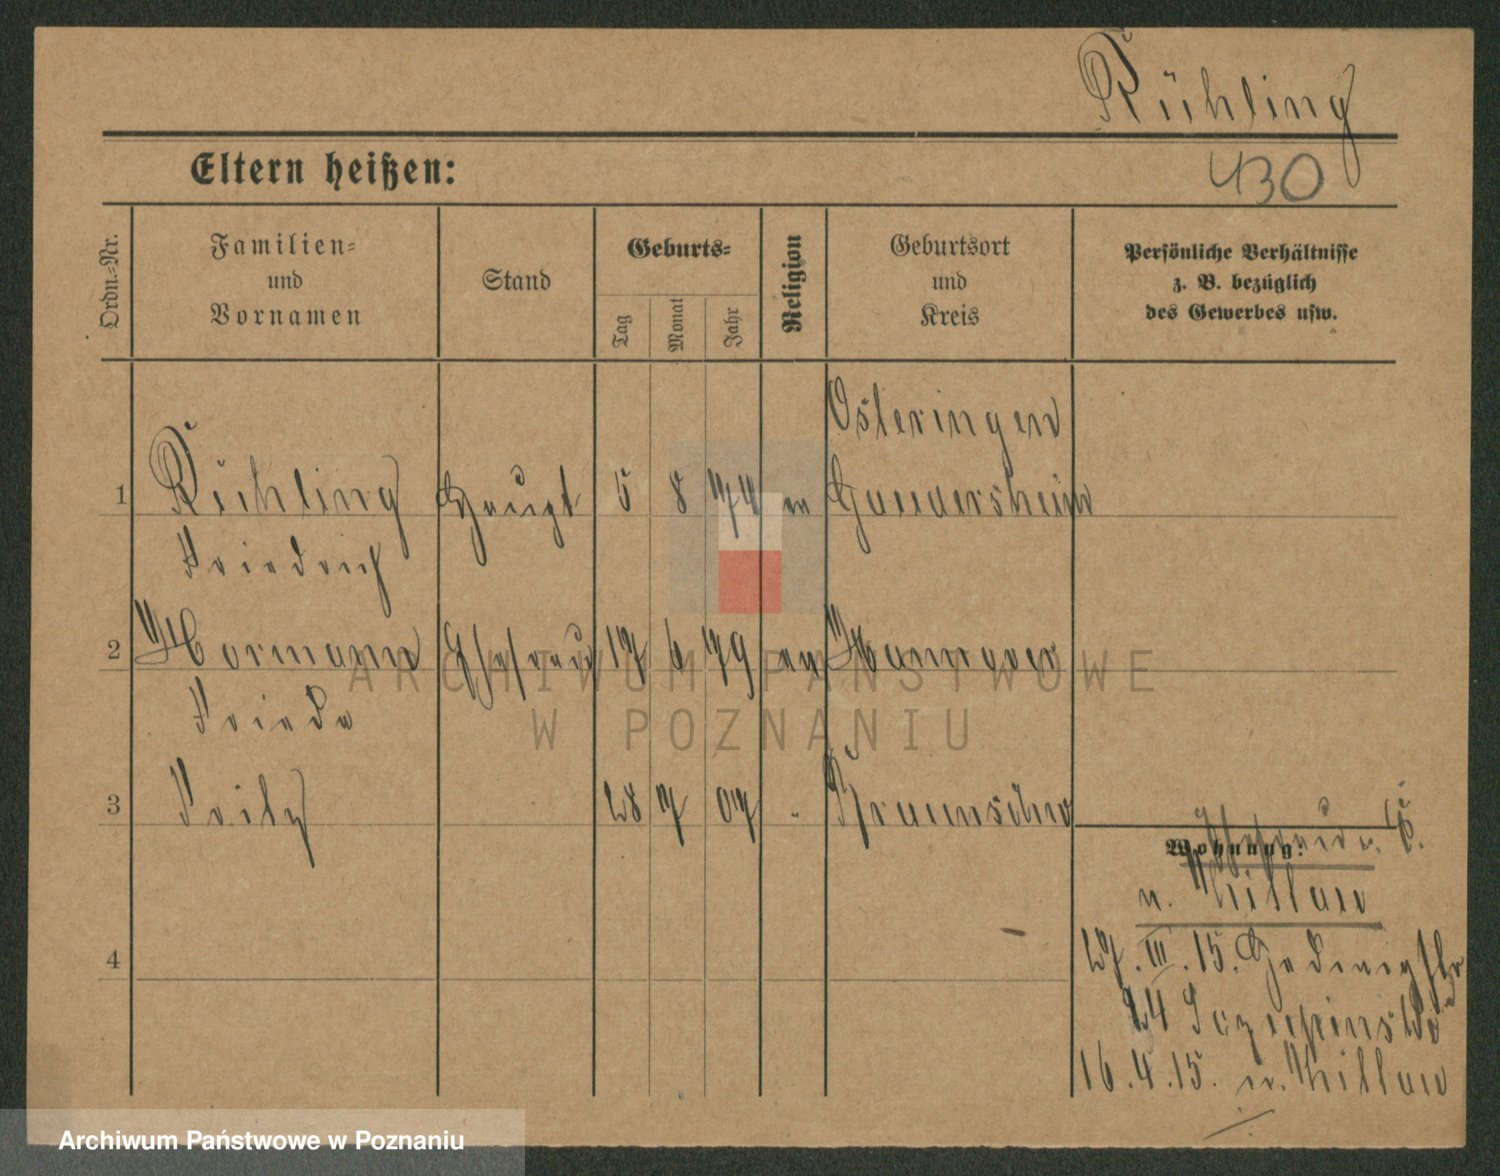 Rühling
Eltern heißen:
430
Ordn.-Nr.
Familien-
und
Vornamen
Stand
Geburts-
Tag
Monat
Jahr
Religion
Geburtsort
und
Kreis
Persönliche Verhältnisse
z. B. bezüglich
des Gewerbes usw.
Osteringen
1 Rühling Haupt 5 8 74 ev Gandersheim
Friedrich
2 Hormann Ehefrau 17 6 79 ev Hannover
Frieda
3 Fritz 28 7 07 " Braunschw
Ehefrau u.
Wohnung:
n.
4
27. III. 15. Hedwigstr
24
16. 4. 15. n.
ARCHIWUM PAŃSTWOWE
W POZNANIU
Archiwum Państwowe w Poznaniu